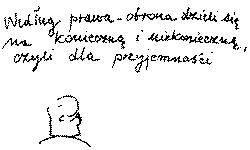 Według prawa - obrona dzieli się
na konieczną i niekonieczną,
czyli dla przyjemności